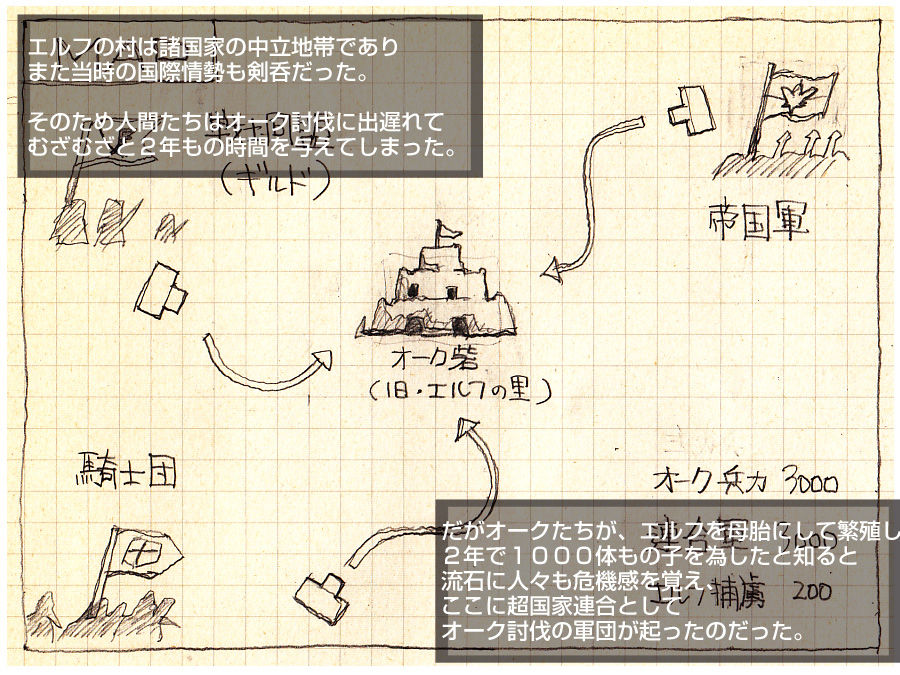 エルフの村は諸国家の中立地帯であり
また当時の国際情勢も剣呑だった。
そのため人間たちはオーク討伐に出遅れて
むざむざと２年もの時間を与えてしまった。
(ギルド)
帝国軍
オーク砦
(旧・エルフの里)
騎士団
オーク兵力 3000
連合軍 7000
エルフ捕虜 200
だがオークたちが、エルフを母胎にして繁殖し
２年で１０００体もの子を為したと知ると
流石に人々も危機感を覚え、
ここに超国家連合として
オーク討伐の軍団が起ったのだった。